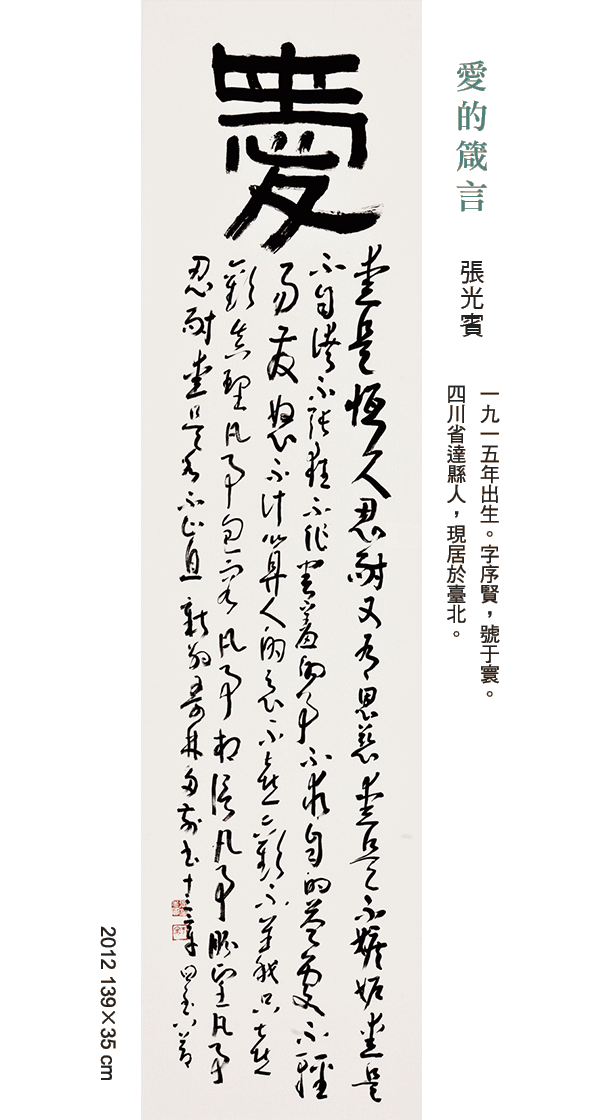 愛的箴言
張光賓
一九一五年出生。字序賢，號于寰。
四川省達縣人，現居於臺北。
愛
愛是恆久忍耐又有恩慈愛是不嫉妒愛是
不自誇不張狂不作害羞的事不求自的益處不輕
易發怒不計算人的惡不喜歡不義只喜
歡真理凡事包容凡事相信凡事盼望凡事
忍耐愛是永不止息 新約哥林多前書十三章四至八節
2012 139×35 cm